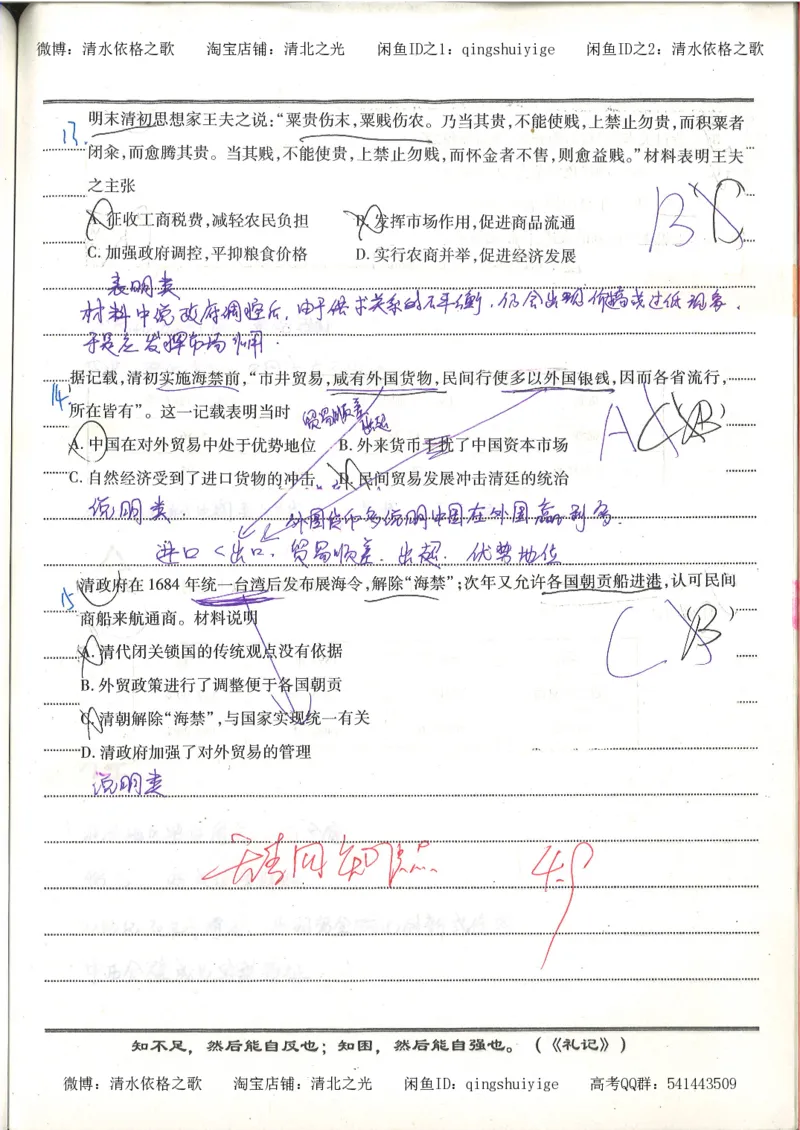 微博：清水依格之歌 淘宝店铺：清北之光 闲鱼ID之1：qingshuiyige 闲鱼ID之2：清水依格之歌
13.
明末清初思想家王夫之说：“粟贵伤末，粟贱伤农。乃当其贵，不能使贱，上禁止勿贵，而积粟者
闭籴，而愈腾其贵。当其贱，不能使贵，上禁止勿贱，而怀金者不售，则愈益贱。”材料表明王夫
之主张
A. 征收工商税费，减轻农民负担 B. 发挥市场作用，促进商品流通
B C
C. 加强政府调控，平抑粮食价格 D. 实行农商并举，促进经济发展
表明类
材料中说政府调控后，由于供求关系的不平衡，仍会出现价格或过低现象，
于是应发挥市场作用.
据记载，清初实施海禁前，“市井贸易，咸有外国货物，民间行使多以外国银钱，因而各省流行，
14.
所在皆有”。这一记载表明当时 贸易顺差 出超
A ( B )
A. 中国在对外贸易中处于优势地位 B. 外来货币干扰了中国资本市场
C. 自然经济受到了进口货物的冲击 D. 民间贸易发展冲击清廷的统治
说明类.
外国货币多说明中国在外国赢利多.
进口 < 出口. 贸易顺差. 出超. 优势地位
清政府在 1684 年统一台湾后发布展海令，解除“海禁”；次年又允许各国朝贡船进港，认可民间
15
商船来航通商。材料说明
C ( B )
A. 清代闭关锁国的传统观点没有依据
B. 外贸政策进行了调整便于各国朝贡
C. 清朝解除“海禁”，与国家实现统一有关
D. 清政府加强了对外贸易的管理
说明类
知不足，然后能自反也；知困，然后能自强也。（《礼记》）
微博：清水依格之歌 淘宝店铺：清北之光 闲鱼ID：qingshuiyige 高考QQ群：541443509